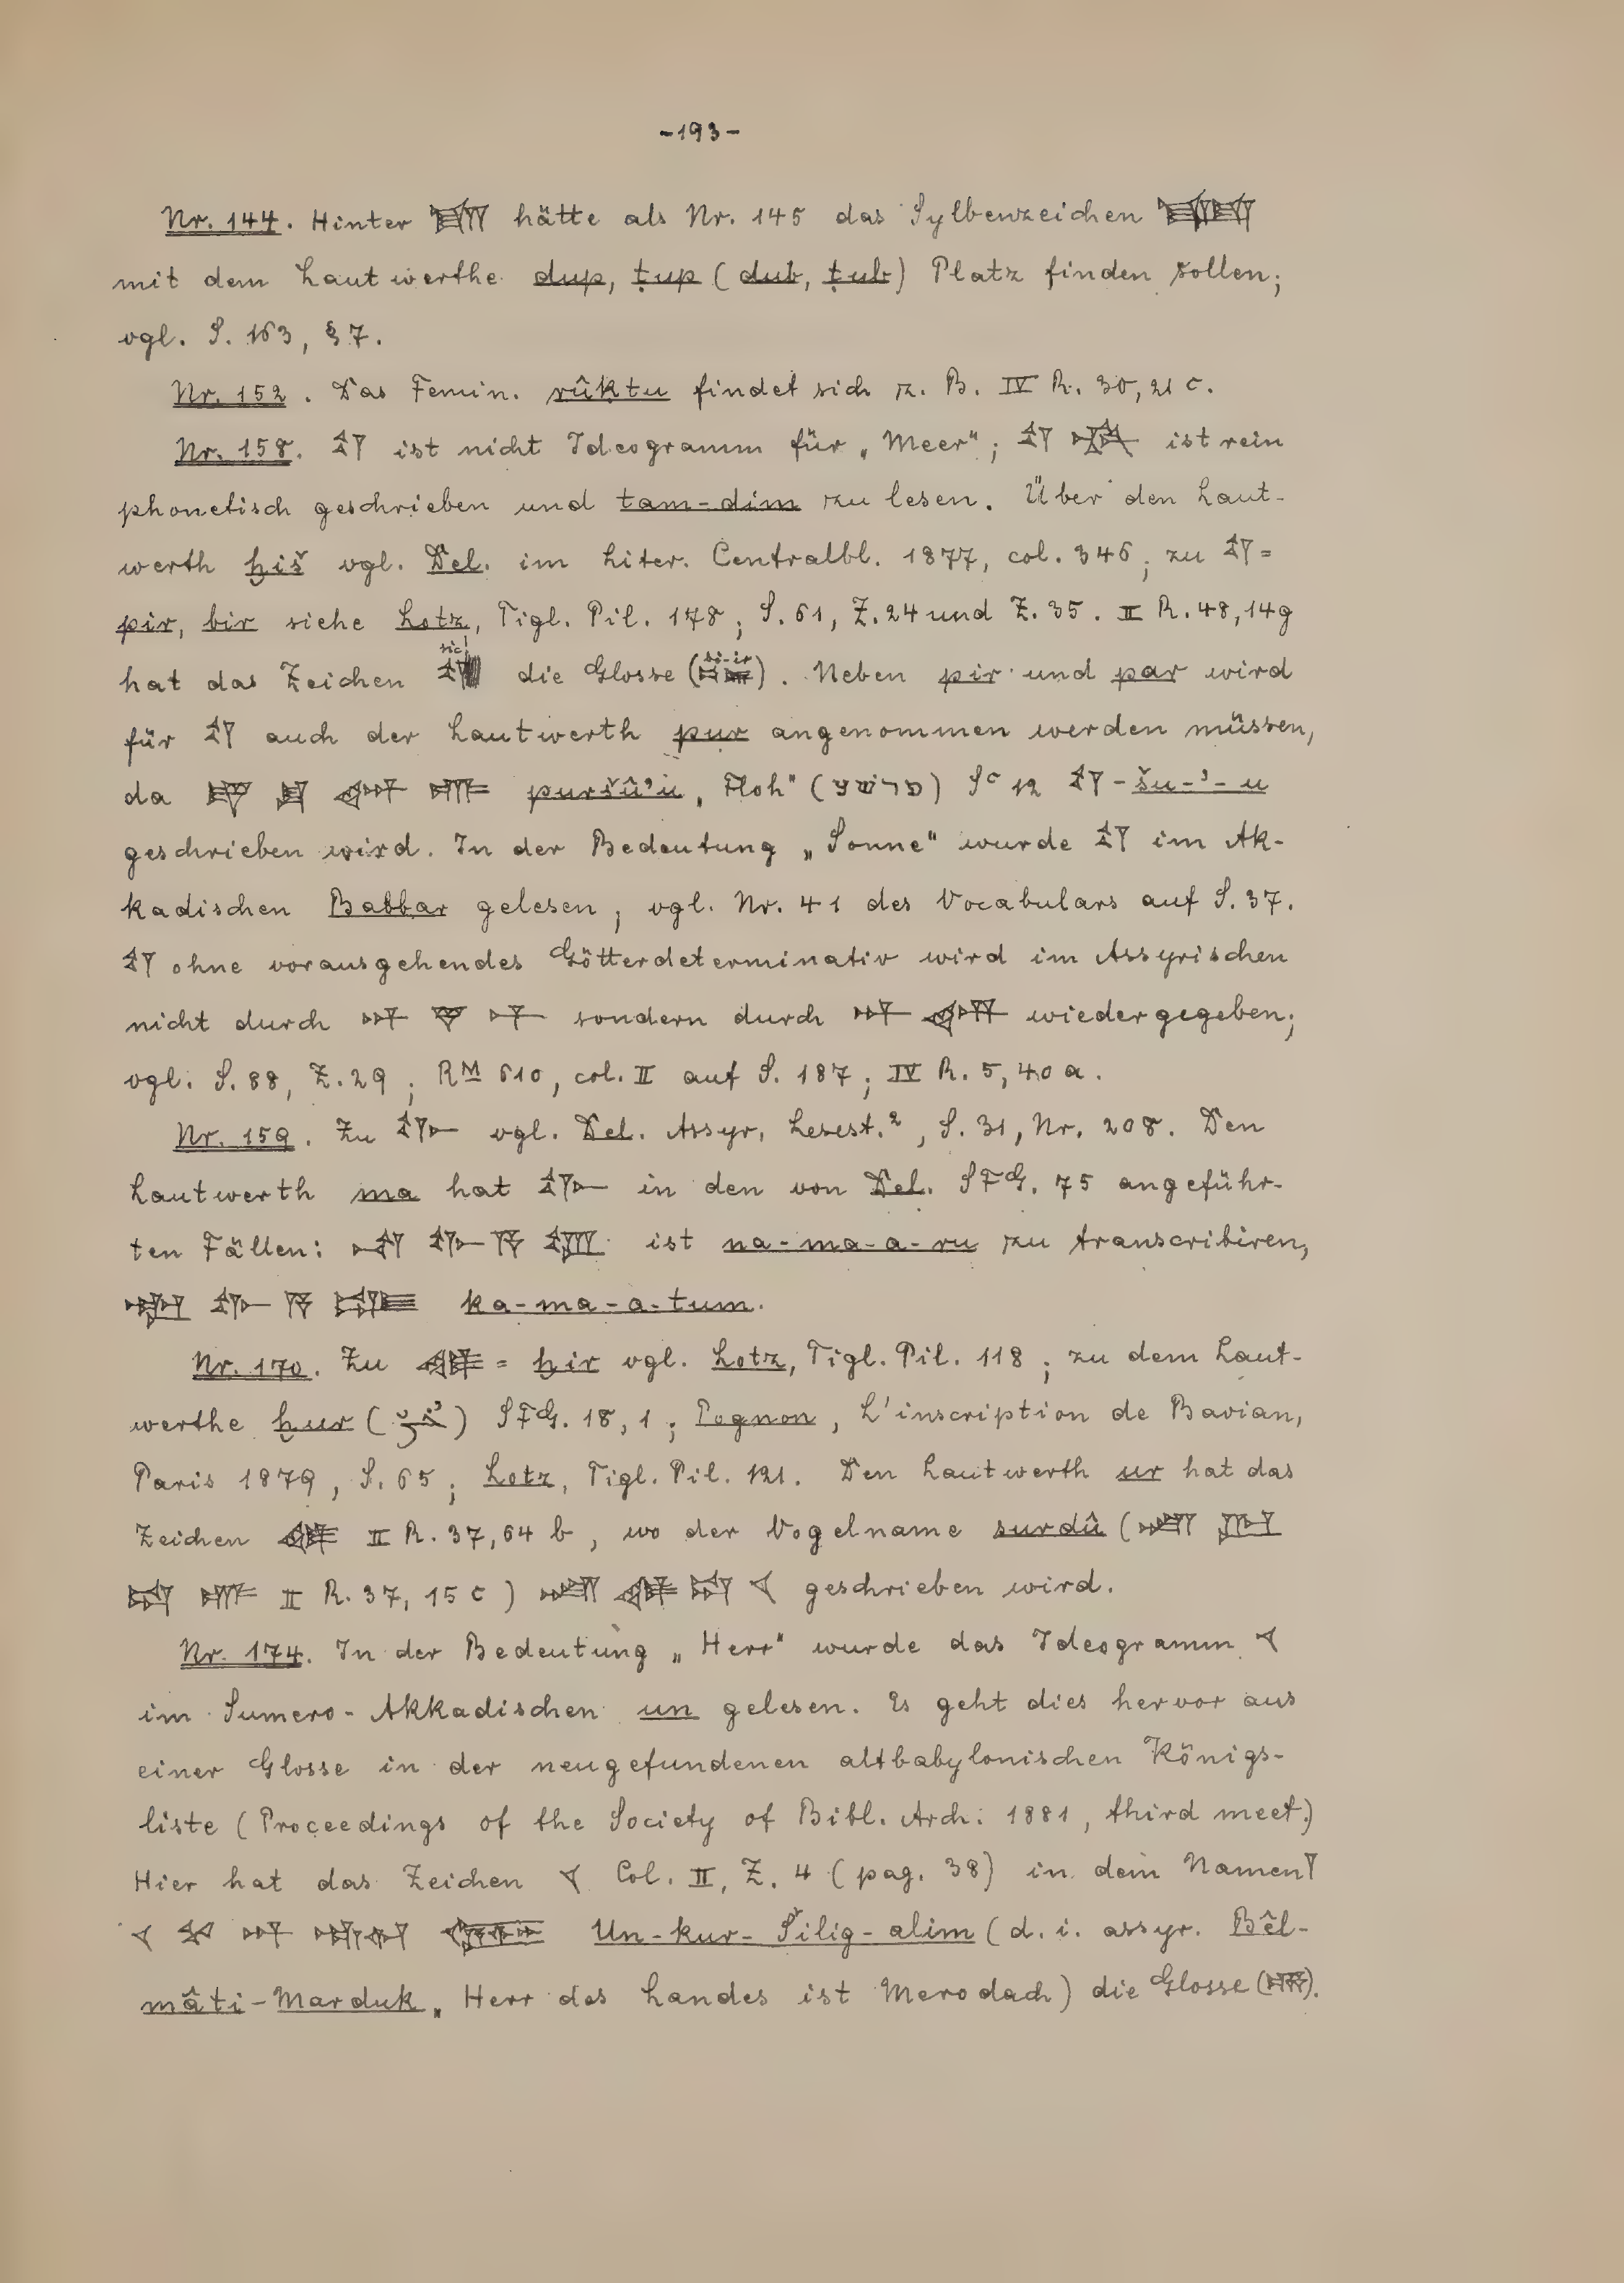 -193-
Nr. 144. Hinter hätte als Nr. 145 das Sylbenzeichen
mit dem Lautwerthe dup, ṭup (dub, ṭub) Platz finden sollen;
vgl. S. 163, § 7.
Nr. 152. Das Femin. rûḳtu findet sich z. B. IV R. 30, 21 c.
Nr. 158. 𒌓 ist nicht Ideogramm für „Meer“; 𒌓 𒁴 ist rein
phonetisch geschrieben und tam-dim zu lesen. Über den Laut-
werth ḫiš vgl. Del. im Liter. Centralbl. 1877, col. 346; zu 𒌓 =
pir, bir siehe Lotz, Tigl. Pil. 178; S. 61, Z. 24 und Z. 35. II R. 48, 14 g
hat das Zeichen sic! 𒌓 die Glosse (si-ir). Neben pir und par wird
für 𒌓 auch der Lautwerth pur angenommen werden müssen,
da puršû'u „Floh“ (פרעש) Sᶜ 12 𒌓-šu-'-u
geschrieben wird. In der Bedeutung „Sonne“ wurde 𒌓 im Ak-
kadischen Babbar gelesen, vgl. Nr. 41 des Vocabulars auf S. 37.
𒌓 ohne vorausgehendes Götterdeterminativ wird im Assyrischen
nicht durch 𒀭 𒌋𒌓 𒀸 sondern durch 𒀭 wiedergegeben;
vgl. S. 88, Z. 29; Rᴹ 610, col. II auf S. 187; IV R. 5, 40 a.
Nr. 159. Zu 𒉿 vgl. Del. Assyr. Lesest.², S. 31, Nr. 208. Den
Lautwerth ma hat in den von Del. SFG. 75 angeführ-
ten Fällen: ist na-ma-a-ru zu transcribiren,
ka-ma-a-tum.
Nr. 170. Zu 𒄯 = ḫir vgl. Lotz, Tigl. Pil. 118; zu dem Laut-
werthe ḫur SFG. 18, 1; Pognon, L'inscription de Bavian,
Paris 1879, S. 65; Lotz, Tigl. Pil. 121. Den Lautwerth ur hat das
Zeichen 𒄯 II R. 37, 64 b, wo der Vogelname surdû (
II R. 37, 15 c) 𒋢 𒄯 𒁺 𒌋 geschrieben wird.
Nr. 174. In der Bedeutung „Herr“ wurde das Ideogramm 𒌋
im Sumero-Akkadischen un gelesen. Es geht dies hervor aus
einer Glosse in der neugefundenen altbabylonischen Königs-
liste (Proceedings of the Society of Bibl. Arch. 1881, third meet.)
Hier hat das Zeichen 𒌋 Col. II, Z. 4 (pag. 38) in dem Namen 𒁹
𒌋 𒆳 𒀭 Un-kur-Šilig-alim (d. i. assyr. Bêl-
mâti-Marduk „Herr des Landes ist Merodach) die Glosse (𒌦).